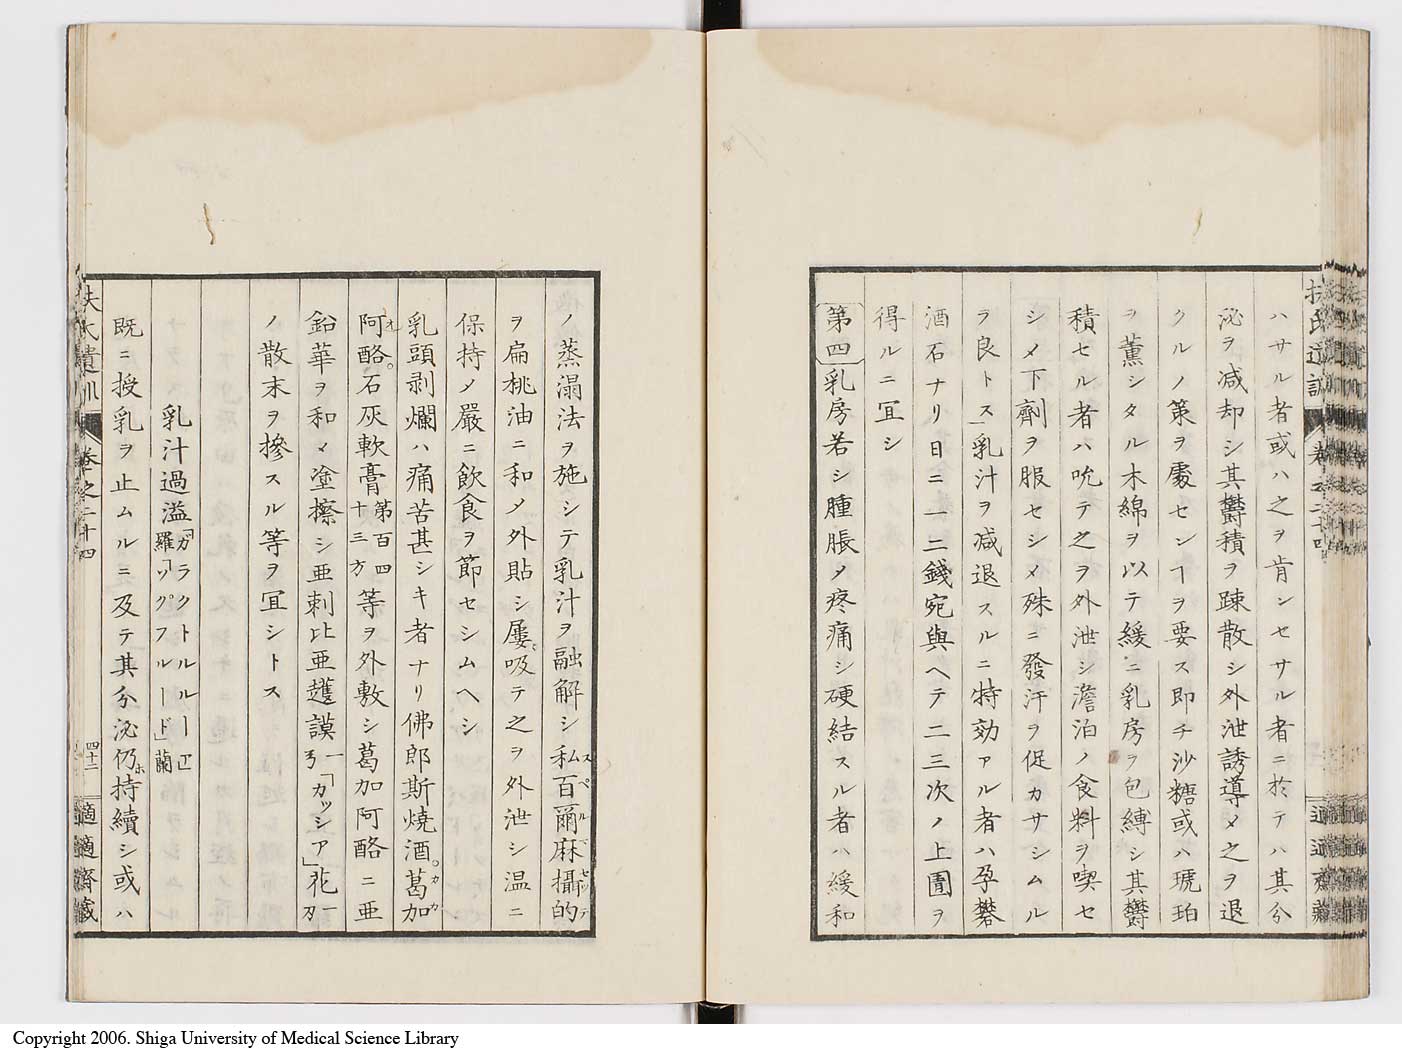 ハサル者或ハ之ヲ肯ンセサル者ニ於テハ其分
泌ヲ减却シ其欝積ヲ踈散シ外泄誘導メ之ヲ退
クルノ策ヲ處センヿヲ要ス即チ沙糖或ハ琥珀
ヲ薫シタル木綿ヲ以テ緩ニ乳房ヲ包縛シ其欝
積セル者ハ吮テ之ヲ外泄シ澹泊ノ食料ヲ喫セ
シメ下劑ヲ服セシメ殊ニ發汗ヲ促カサシムル
ヲ良トス乳汁ヲ减退スルニ特効アル者ハ孕礬
酒石ナリ日ニ一二錢宛與ヘテ二三次ノ上圊ヲ
得ルニ冝シ
第四 乳房若シ腫脹ノ疼痛シ硬結スル者ハ緩和
ノ蒸溻法ヲ施シテ乳汁ヲ融解シ私百爾麻攝的
ヲ扁桃油ニ和メ外貼シ屢吸テ之ヲ外泄シ温ニ
保持ノ嚴ニ飲食ヲ節セシムヘシ
乳頭剥爛ハ痛苦甚シキ者ナリ佛郎斯燒酒。葛加
阿酪。石灰軟膏第百四十三方等ヲ外敷シ葛加阿酪ニ亜
鉛華ヲ和メ塗擦シ亜剌比亜護謨一ヲ「カッシア」花一カ
ノ散末ヲ摻スル等ヲ冝シトス
乳汁過溢「ガラクトルルーエ」羅「ソクフルード」蘭
既ニ授乳ヲ止ムルニ及テ其分泌仍持續シ或ハ
扶氏遺訓 卷之二十四 四十二 適適齋藏
Copyright 2006. Shiga University of Medical Science Library